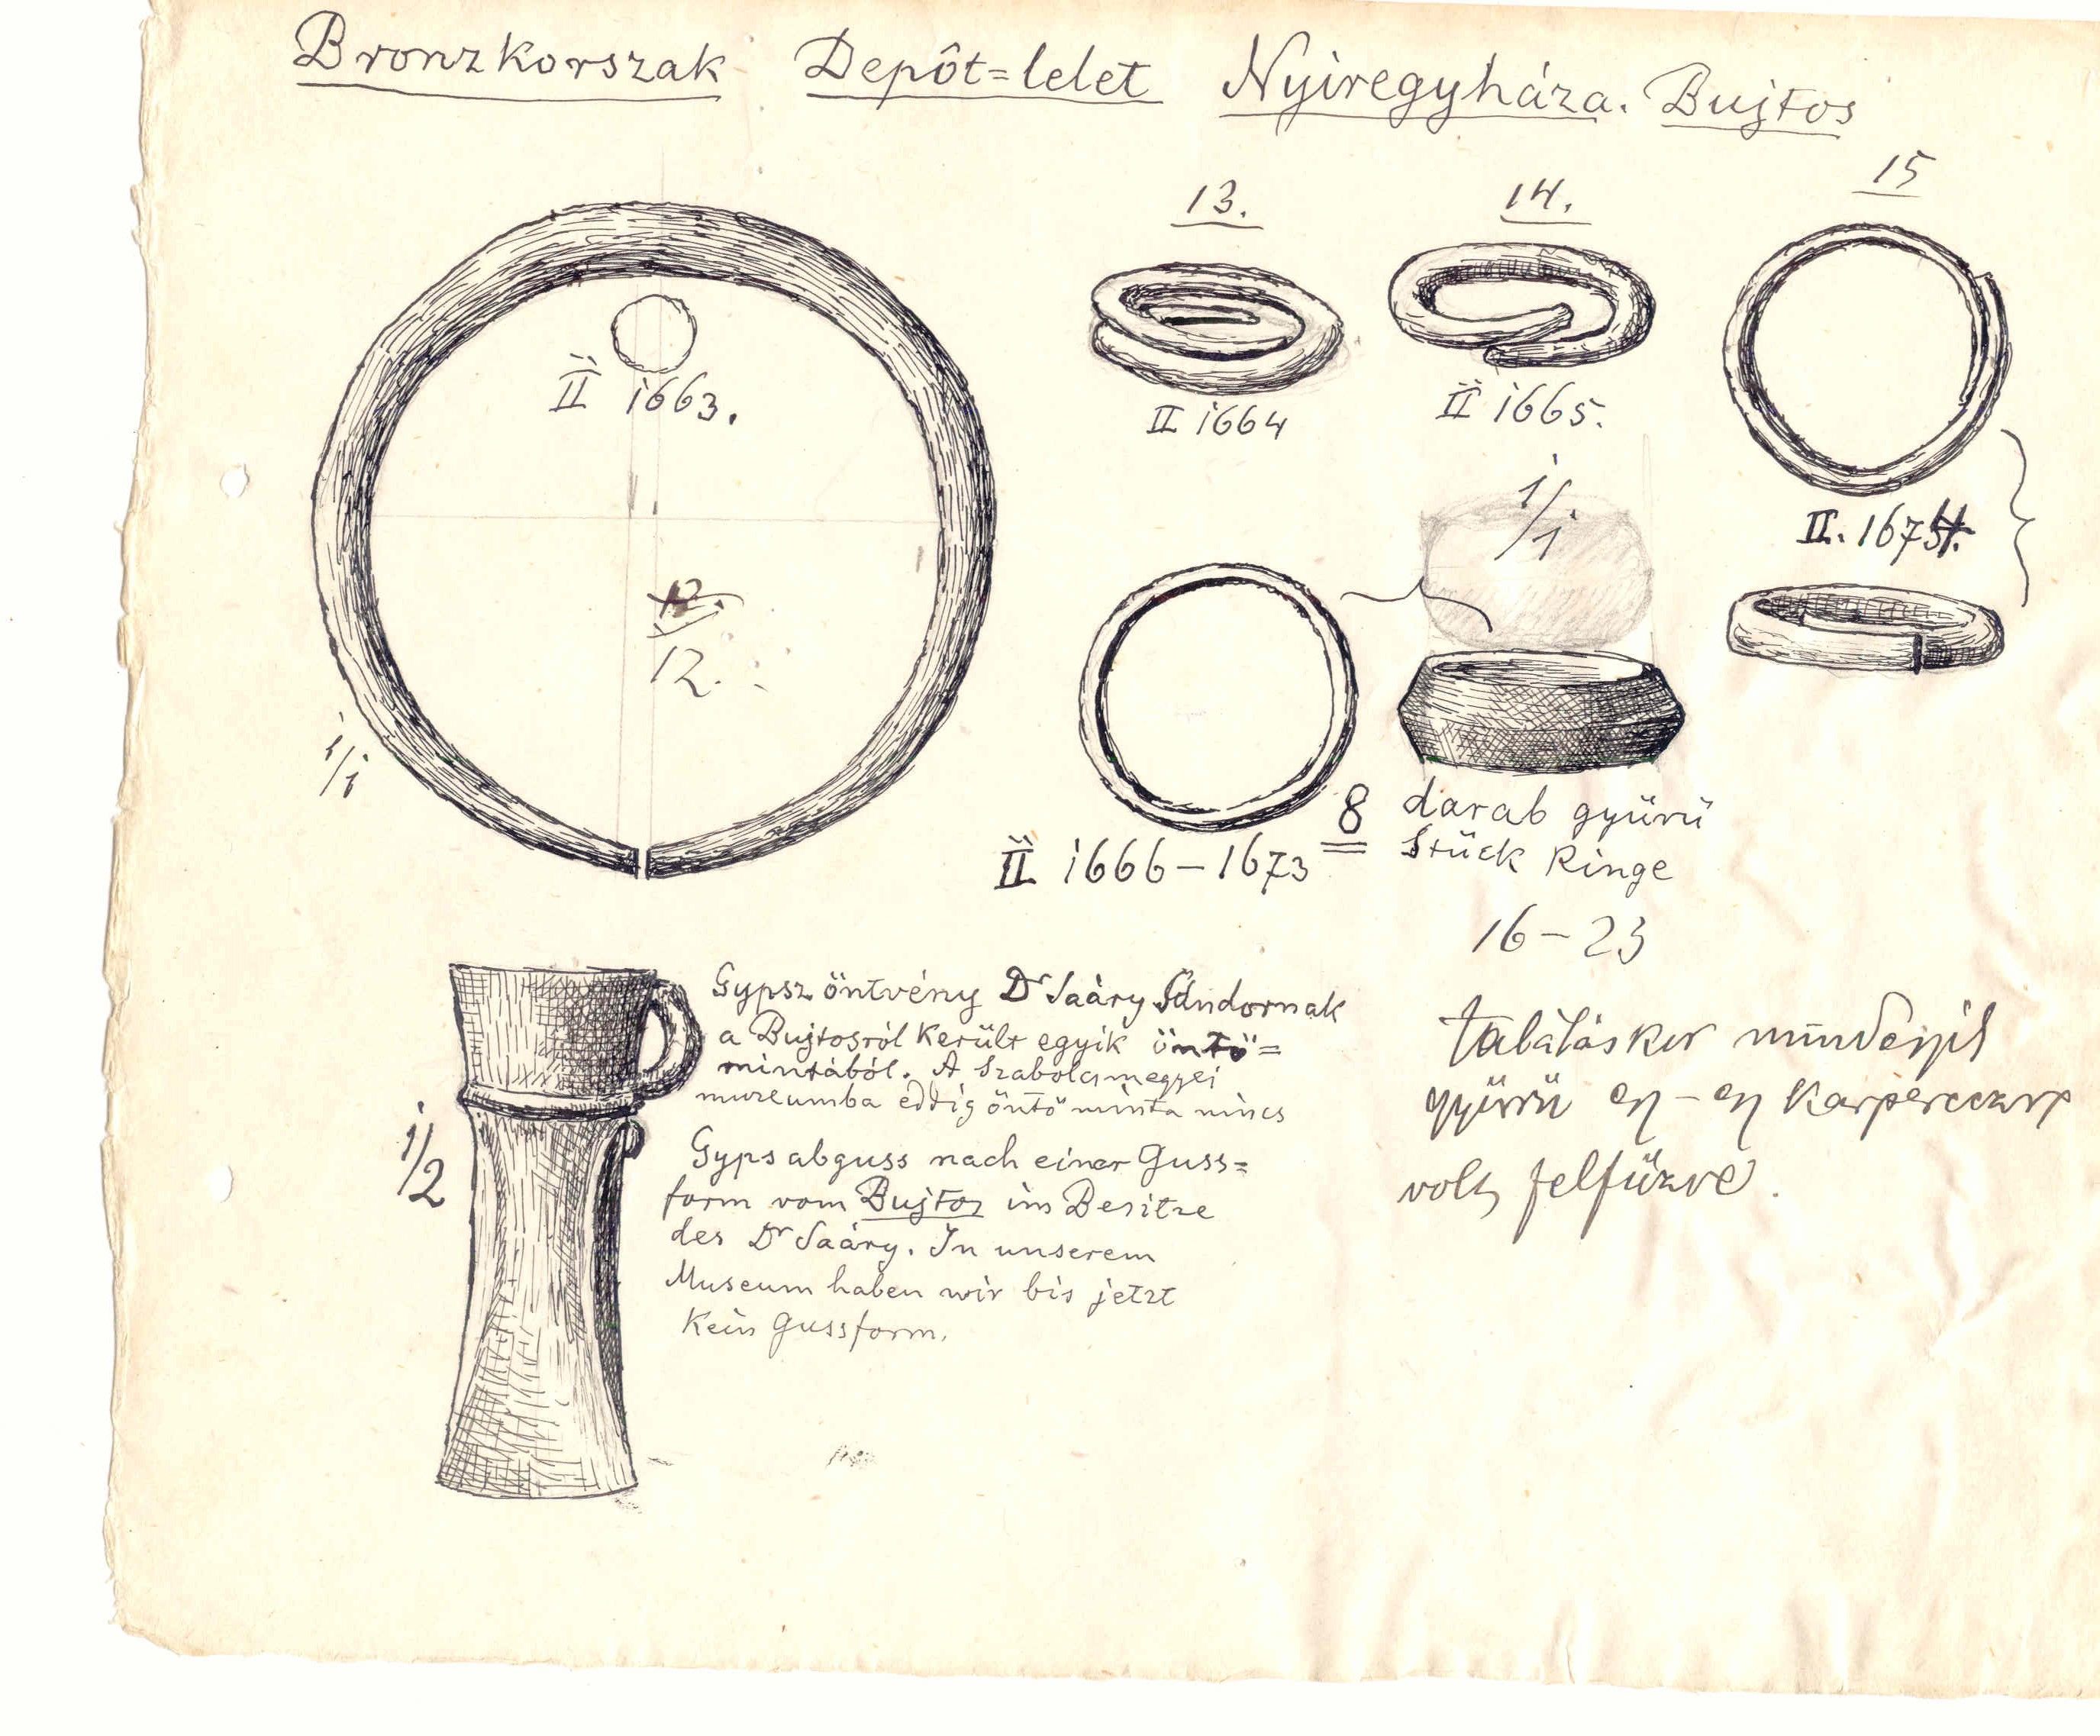 Bronzkorszak Depôt=lelet Nyiregyháza. Bujtos
13.
14.
15
II 1663.
II 1664
II 1665.
1/1
II. 167
12.
1/1
8 darab gyürü
Stück Ringe
II 1666–1673
16–23
Gypsz öntvény Dr Saáry Sándornak
a Bujtosról került egyik öntö=
mintából. A Szabolcsmegyei
muzeumba eddig öntö minta nincs
1/2
Gypsabguss nach einer Guss=
form vom Bujtos im Besitze
des Dr Saáry. In unserem
Museum haben wir bis jetzt
Kein Gussform.
találáskor mindegyik
gyürü egy–egy karperecre
volt felfüzve.